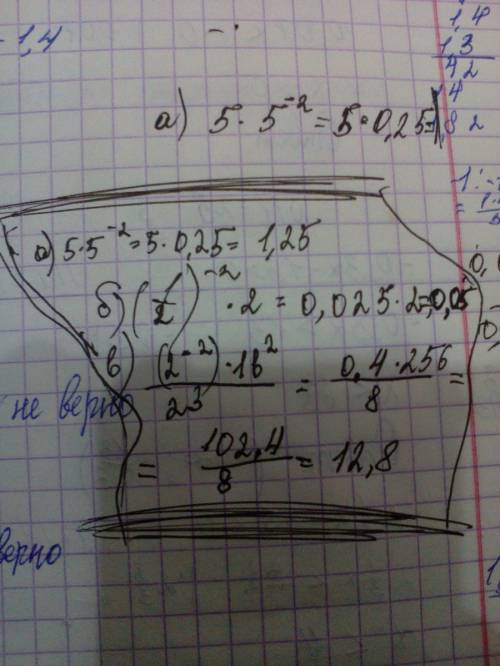 - 1,4
1,4
1,3
42
14
1,82
а) 5 · 5⁻² = 5 · 0,25 =
а) 5 · 5⁻² = 5 · 0,25 = 1,25
б) ( )⁻² · 2 = 0,025 · 2 = 0,05
в) (2⁻²) · 16² / 2³ = 0,4 · 256 / 8 =
не верно
= 102,4 / 8 = 12,8
верно